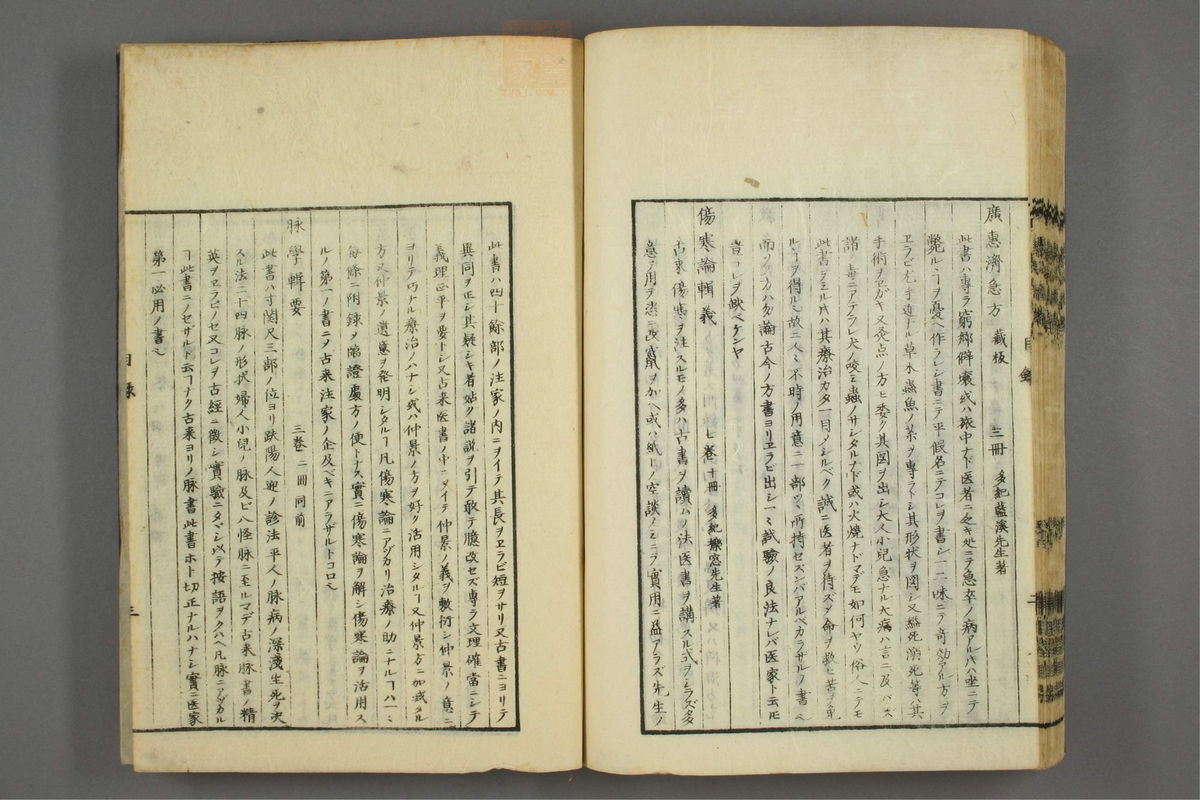 廣惠濟急方 藏板 三冊 多紀藍溪先生著
此書ハ專ラ窮鄕僻壤或ハ旅中ナド医者ニ乏キ処ニテ急卒ノ病アルトキハ坐ニテ
斃ルヿヲ憂ヘ作ラレシ書ニテ平假名ニテコレヲ書シ一二味ニテ奇効アル方ヲ
ヱラビ左手近ナル草木蟲魚ノ茶ヲ專ラトシ其形状ヲ図シ又縊死溺死等ノ其
手術ヲヱガキ又灸点ノ方ヒ委ク其図ヲ出シ大人小兒急ナル大病ハ言ニ及バズ
諸ノ毒ニアテラレ犬ノ咬ミ蟲ノサシタルナド或ハ火燒ナドマデモ如何ヤウ俗人ニテモ
此書ヲミルトキハ其療治カタ一目ノシルベク誠ニ医者ヲ待ズメ命ヲ救ヒ苦ヲ免
ルヽヿヲ得ルユヘ故ニ人々不時ノ用意ニ一部ヅヽ所持セズンバアルベカラザルノ書ヘ
而ソノ方ハ勿論古今ノ方書ヨリヱラビ出シ一々試驗ノ良法ナレバ医家ト云トモ
豈コレヲ缺ベケンヤ
傷寒論輯義 七卷 十冊 多紀櫟窓先生著
古來傷寒ヲ注スルモノ多ハ古書ヲ讀ハノ法医書ヲ講スル式ヲシラズ多
意ヲ用テ恣ニ改竄ヲカヘ或ハ紙上ノ空談ノミニテ實用ニ益アラズ先生ノ
目錄
二
此書ハ四十餘部ノ注家ノ内ニヲイテ其長ヲヱラビ短ヲサリ又古書ニヨリテ
異同ヲ正シ其疑シキ者姑ク諸説ヲ引テ敢テ臆改セズ專ラ文理確當ニシテ
義理正平ヲ要トシ又古来医書ノ中ニヲイテ仲景ノ義ヲ敷衍シ仲景ノ意ニ
ヨリテ巧ナル療治ノハナシ或ハ仲景ノ方ヲ好ク活用シタルヿ又仲景方ニ加減タル
方又仲景ノ遺意ヲ発明シタルヿ凡傷寒論ニアヅカリ治療ノ助ニナルヿハ一々
每條ニ附録ヲ臨證處方ノ便トナス實ニ傷寒論ヲ解シ傷寒論ヲ活用ス
ルノ第一ノ書ニメ古来注家ノ企及ベキニアラザルトコロヘ
脉學輯要 三卷 二冊 同前
此書ハ寸関尺三部ノ位ヨリ趺陽人迎ノ診法平人ノ脉病ノ深淺生死ヲ決
スル法二十四脉ノ形状婦人小兒ノ脉及ビ八怪脉ニ至ルマデ古来脉書ノ精
英ヲヱラビノセ又コレヲ古經ニ徵シ實驗ニタメシ以テ按語ヲクハヘ凡脉ニアヅカル
ヿ此書ニノセザルト云ヿナク古来ヨリノ脉書此書ホト切正ナルハナシ實ニ医家
第一必用ノ書ヘ
目錄
三